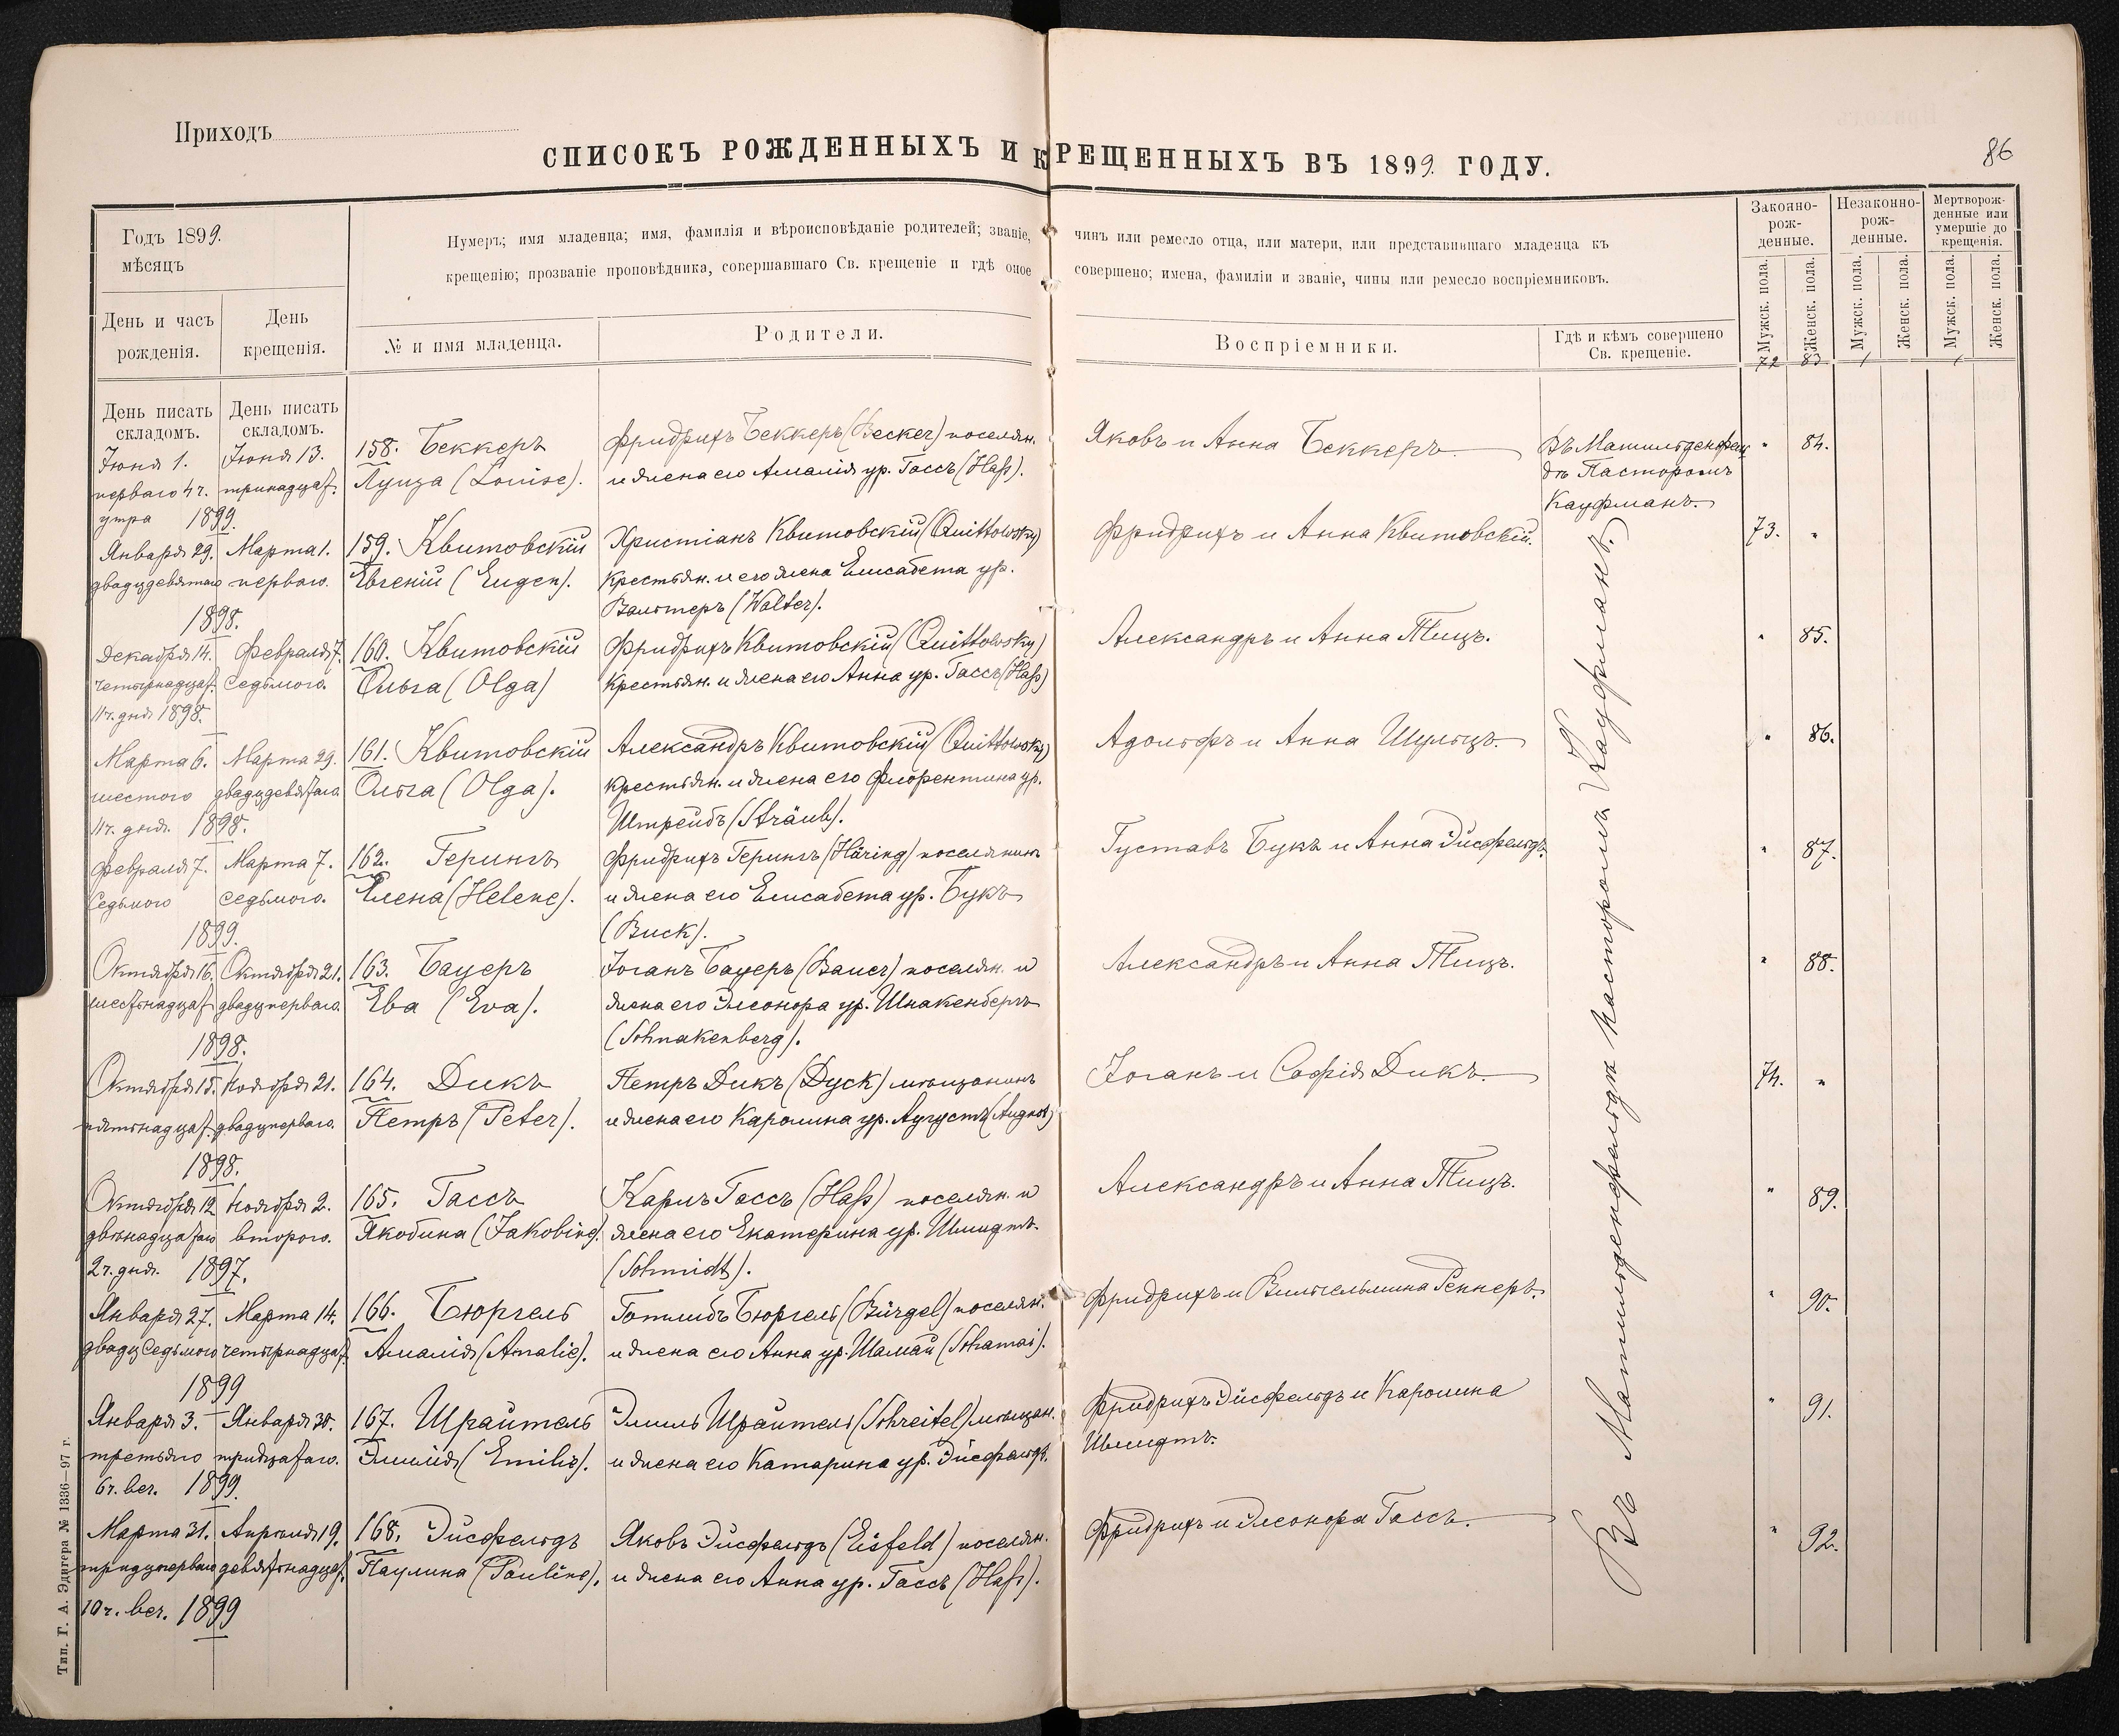 Приходъ
86
СПИСОКЪ РОЖДЕННЫХЪ И КРЕЩЕННЫХЪ ВЪ 1899. ГОДУ.
Годъ 1899.
мѣсяцъ
День и часъ
рожденія.
День
крещенія.
Нумеръ; имя младенца; имя, фамилія и вѣроисповѣданіе родителей; званіе, чинъ или ремесло отца, или матери, или представившаго младенца къ
крещенію; прозваніе проповѣдника, совершавшаго Св. крещеніе и гдѣ оное совершено; имена, фамиліи и званіе, чины или ремесло воспріемниковъ.
№ и имя младенца.
Родители.
Воспріемники.
Гдѣ и кѣмъ совершено
Св. крещеніе.
Законно-
рож-
денные.
Незаконно-
рож-
денные.
Мертворож-
денные или
умершіе до
крещенія.
Мужск. пола.
Женск. пола.
Мужск. пола.
Женск. пола.
Мужск. пола.
Женск. пола.
72 83 1 1
День писать
складомъ.
День писать
складомъ.
Іюня 1.
перваго 4 ч.
утра 1899.
Іюня 13.
тринадцат.
158. Беккеръ
Луиза (Louise).
Фридрихъ Беккеръ (Becker) поселян.
и жена его Амалія ур. Гассъ (Haß).
Яковъ и Анна Беккеръ.
Въ Матильденфель
дѣ Пасторомъ
Кауфманъ.
" 84.
Января 29.
двадцдевятаго
1898.
Марта 1.
перваго.
159. Квитовскій
Евгеній (Eugen).
Христіанъ Квитовскій (Quittowsky)
крестьян. и его жена Елисабета ур.
Вальтеръ (Walter).
Фридрихъ и Анна Квитовскій.
73. "
Декабря 14.
четырнадцат.
11 ч. дня 1898.
Февраля 7.
седьмого.
160. Квитовскій
Ольга (Olga)
Фридрихъ Квитовскій (Quittowsky)
крестьян. и жена его Анна ур. Гассъ (Haß)
Александръ и Анна Тицъ.
" 85.
Марта 6.
шестого
11 ч. дня. 1898.
Марта 29.
двадцдевятаго
161. Квитовскій
Ольга (Olga).
Александръ Квитовскій (Quittowsky)
крестьян. и жена его Флорентина ур.
Штрейбъ (Sträub).
Адольфъ и Анна Шульцъ.
" 86.
Февраля 7.
седьмого
1899.
Марта 7.
седьмого.
162. Герингъ
Елена (Helene).
Фридрихъ Герингъ (Häring) поселянинъ
и жена его Елисабета ур. Букъ
(Buck).
Густавъ Букъ и Анна Эйсфельдъ.
" 87.
Октября 16.
шестнадцат
1898.
Октября 21.
двадцперваго.
163. Бауеръ
Ева (Eva).
Іоганъ Бауеръ (Bauer) поселян. и
жена его Элеонора ур. Шнакенбергъ
(Schnakenberg).
Александръ и Анна Тицъ.
" 88.
Октября 15.
пятнадцат.
1898.
Ноября 21.
двадцперваго.
164. Дикъ
Петръ (Peter).
Петръ Дикъ (Dyck) мѣщанинъ
и жена его Каролина ур. Августъ (August)
Іоганъ и Софія Дикъ.
74. "
Октября 12
двѣнадцатаго
2 ч. дня. 1897.
Ноября 2.
второго.
165. Гассъ
Якобина (Jakobine).
Карлъ Гассъ (Haß) поселян. и
жена его Екатерина ур. Шмидтъ
(Schmidt).
Александръ и Анна Тицъ.
" 89.
Января 27.
двадцседьмого
1899
Марта 14.
четырнадцат.
166. Бюргель
Амалія (Amalie).
Готлибъ Бюргель (Bürgel) поселян.
и жена его Анна ур. Шамай (Schamai).
Фридрихъ и Вильгельмина Реннеръ.
" 90.
Января 3.
третьяго
6 ч. веч. 1899.
Января 30.
тридцатаго.
167. Шрайтель
Эмилія (Emilie).
Эмиль Шрайтель (Schreitel) мѣщан.
и жена его Катарина ур. Эйсфельдъ.
Фридрихъ Эйсфельдъ и Каролина
Шмидтъ.
" 91.
Марта 31.
тридцперваго
10 ч. веч. 1899
Апрѣля 19.
девятнадцат.
168. Эйсфельдъ
Паулина (Pauline).
Яковъ Эйсфельдъ (Eisfeld) поселян.
и жена его Анна ур. Гассъ (Haß).
Фридрихъ и Элеонора Гассъ.
" 92.
Въ Матильденфельдѣ пасторомъ Кауфманъ.
Тип. Г. А. Эдигера № 1336—97 г.